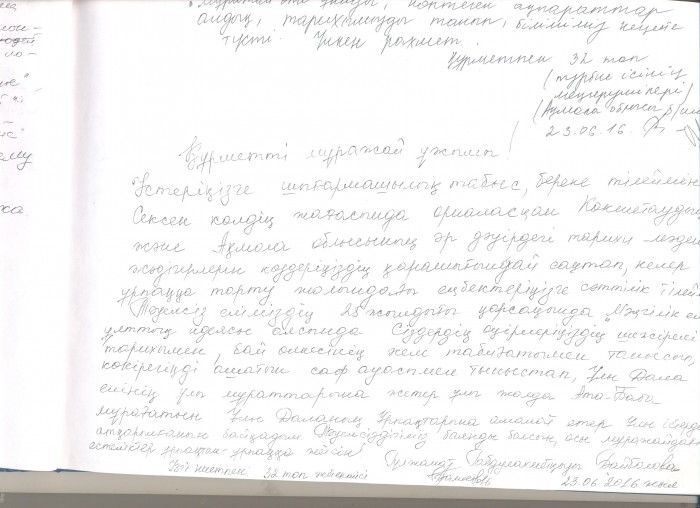 көптеген ақпараттар
алдық, тарихымызды танып, біліміміз кеңейе
түсті. Үлкен рахмет.
Құрметпен 32 топ
(тұрбие ісінің
меңгерушілері)
(Ақмола облысы
23.06.16.
Құрметті мұражай ұжымы!
Істеріңізге шығармашылық табыс, береке тілеймін
Сексен көлдің жағасында орналасқан Көкшетаудың
және Ақмола облысының әр дәуірдегі тарихи-мәдени
жәдігерлерін көздеріңіздің қарашығындай сақтап, келер
ұрпаққа тарту жолындағы еңбектеріңізге сәттілік тілей
Тәуелсіз еліміздің 25 жылдығы қарсаңында Мәңгілік ел
ұлттық идеясы аясында Сіздердің өңірлеріңіздің шежірелі
тарихымен, бай өлкесінің кең табиғатымен танысып,
көкірегіңді ашатын саф ауасымен тыныстап, Ұлы Дала
елінің ұлы мұраттарына жетер ұлы жолда Ата-Баба
мұрағатын Ұлы Даланың Ұрпақтарына аманат етер Ұлы істердің
атқарылғанын байқадым. Тәуелсіздігіміз баянды болсын, осы мұражайдағы
естеліктер ұрпақтан-ұрпаққа жетсін!
Ізгі ниетпен 32 топ жетекшісі
23.06 2016 жыл